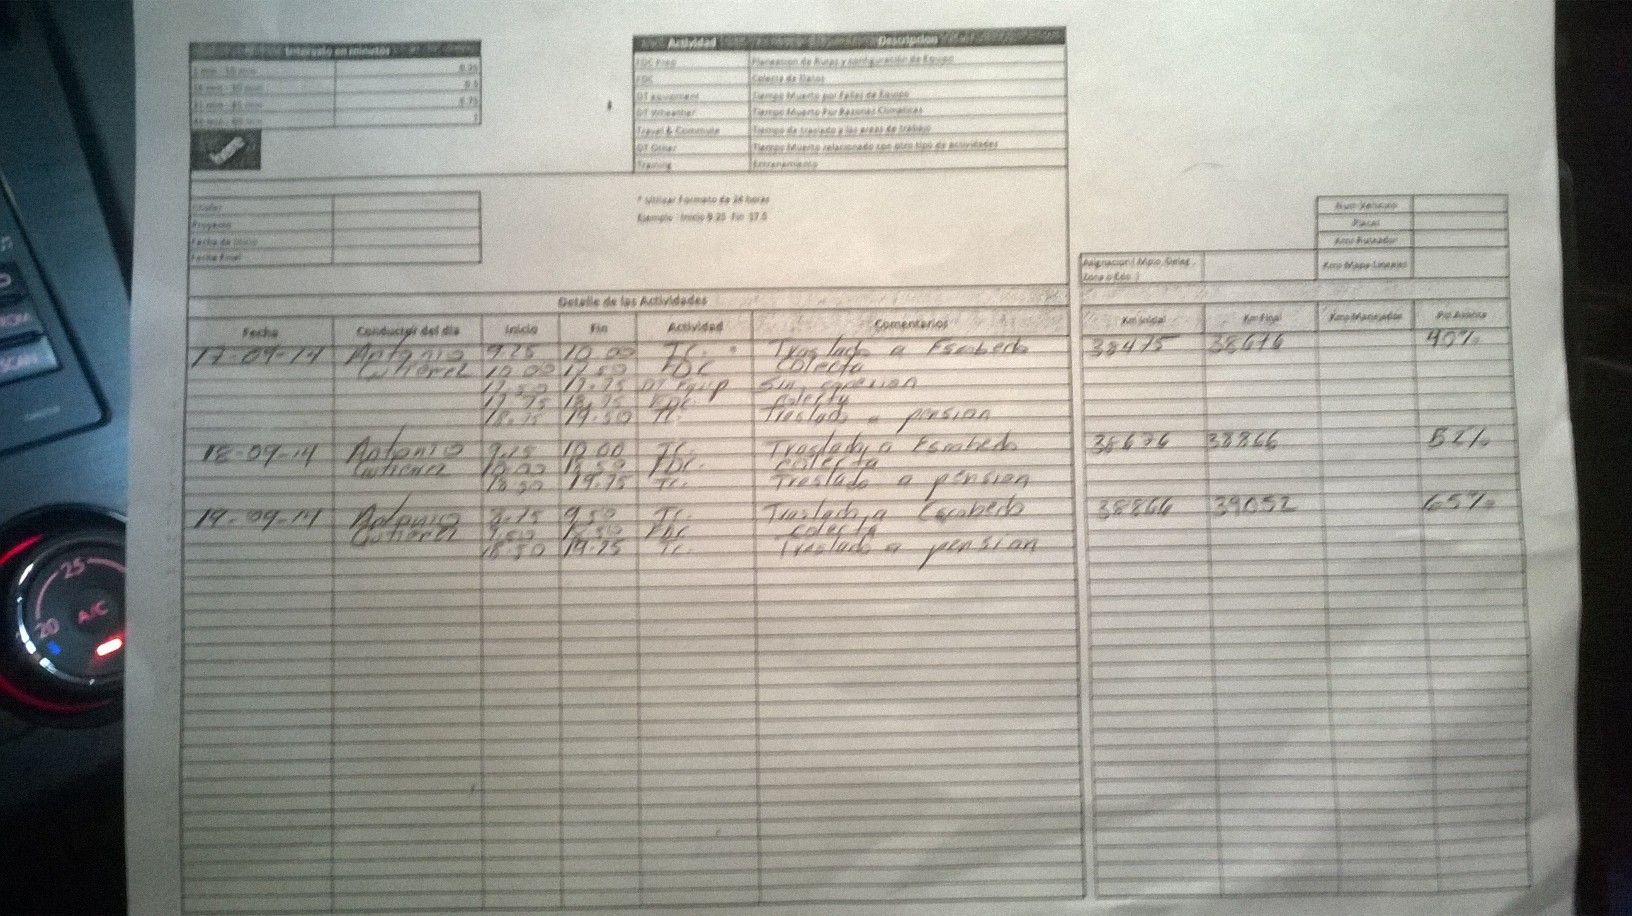 Intervalo en minutos
0.25
0.5
0.75
1
Actividad Descripcion
FDC Prep Planeacion de Rutas y configuración de Equipo
FDC Colecta de Datos
DT equipment Tiempo Muerto por Fallas de Equipo
DT Wheather Tiempo Muerto Por Razones Climaticas
Travel & Commute Tiempo de traslado a las areas de trabajo
DT Other Tiempo Muerto relacionado con otro tipo de actividades
Training Entrenamiento
* Utilizar Formato de 24 horas
Ejemplo Inicio 9.25 Fin 17.5
Proyecto
Fecha de Inicio
Fecha Final
Placas
Asignacion ( Mpio. Deleg.
Zona o Edo. )
Detalle de las Actividades
Fecha Conductor del dia Inicio Fin Actividad Comentarios Km Inicial Km Final Kms Manejados Por Avance
17-09-14 Antonio 9.25 10.00 Tc. Traslado a Escobedo 38475 38676 40%
Gutierrez 10.00 17.50 FDC colecta
17.50 17.75 DT Equip Sin
17.75 18.75 FDC
18.75 19.50 Tc. Traslado a pension
18-09-14 Antonio 9.25 10.00 Tc. Traslado a Escobedo 38676 38866 52%
Gutierrez 10.00 18.50 FDC. colecta
18.50 19.75 Tc. Traslado a pension
19-09-14 Antonio 8.75 9.50 Tc. Traslado a Escobedo 38866 39052 65%
Gutierrez 9.50 18.50 FDC colecta
18.50 19.25 Tc. Traslado a pension
25
20
A/C
SCAN